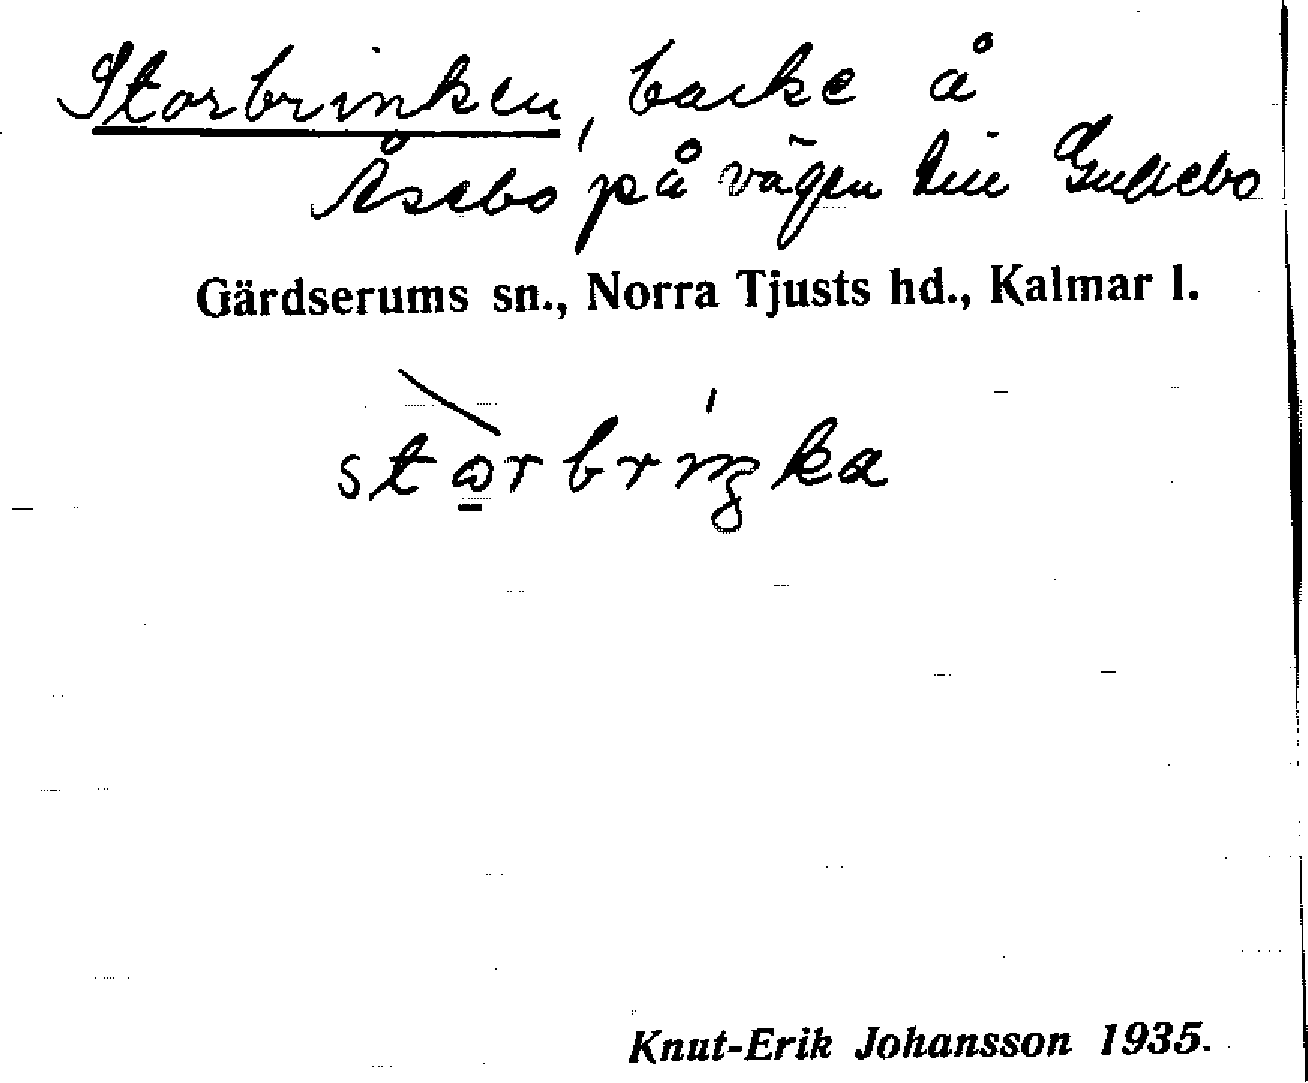 Storbrinken, backe å
Åsebo på vägen till Gullebo
Gärdserums sn., Norra Tjusts hd., Kalmar l.
stὼ̠rbrıŋ́ka
Knut-Erik Johansson 1935.